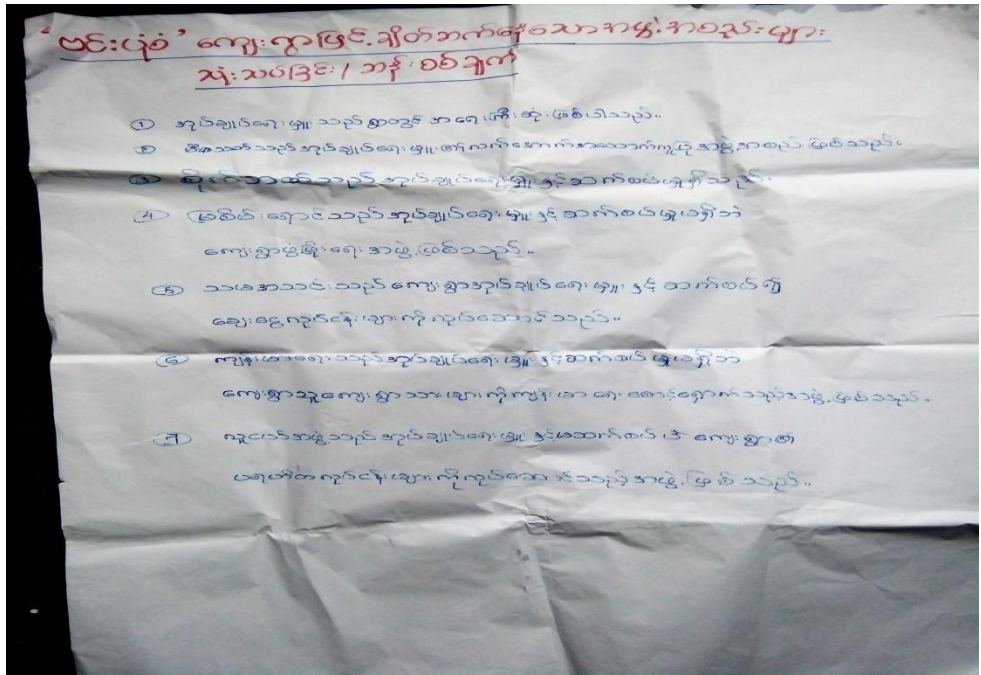 ' ဗင်းပုံစံ ' ကျေးရွာဖြင့် ချိတ်ဘက်နေသောအဖွဲ့အစည်းများ
သုံးသပ်ခြင်း / ဘန်းစစ်ချက်
① အုပ်ချုပ်ရေးမှူးသည် ရွာတွင် အရေးကြီးဆုံးဖြစ်ပါသည်။
② သည် အုပ်ချုပ်ရေးမှူး၏ လက်အောက်အထောက်အကူပြုအဖွဲ့အစည်း ဖြစ်သည်။
③ သည် အုပ်ချုပ်ရေးမှူးနှင့် ဆက်စပ်မှုရှိသည်။
④ မြစိမ်းရောင်သည် အုပ်ချုပ်ရေးမှူးနှင့် ဆက်စပ်မှုမရှိဘဲ
ကျေးရွာဖွံ့ဖြိုးရေးအဖွဲ့ဖြစ်သည်။
⑤ သမအသင်းသည် ကျေးရွာအုပ်ချုပ်ရေးမှူးနှင့် ဆက်စပ်၍
ချေးငွေလုပ်ငန်းများကိုလုပ်ဆောင်သည်။
⑥ ကျန်းမာရေးသည် အုပ်ချုပ်ရေးမှူးနှင့် ဆက်စပ်မှုမရှိဘဲ
ကျေးရွာသူကျေးရွာသားများကို ကျန်းမာရေးစောင့်ရှောက်သည့်အဖွဲ့ဖြစ်သည်။
⑦ လူငယ်အဖွဲ့သည် အုပ်ချုပ်ရေးမှူးနှင့်မဆက်စပ်ဘဲ ကျေးရွာ၏
ပရဟိတလုပ်ငန်းများကိုလုပ်ဆောင်သည့်အဖွဲ့ဖြစ်သည်။